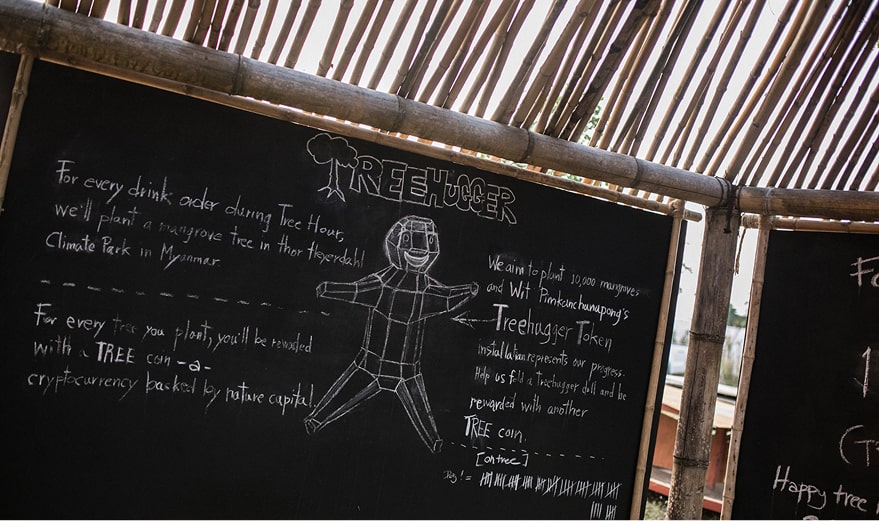 TREEHUGGER
For every drink order during Tree Hour,
we'll plant a mangrove tree in thor Heyerdahl
Climate Park in Myanmar.
For every tree you plant, you'll be rewarded
with a TREE coin -a-
cryptocurrency backed by nature capital.
We aim to plant 10,000 mangroves
and Wit Pimkanchanapong's
Treehugger Token
installation represents our progress.
Help us fold a Treehugger doll and be
rewarded with another
TREE coin.
Happy tree